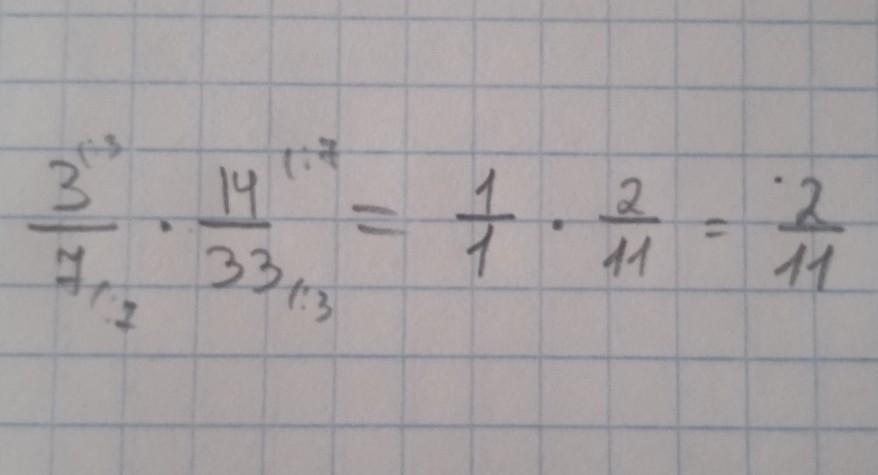 3(:3/7(:7 · 14(:7/33(:3 = 1/1 · 2/11 = 2/11